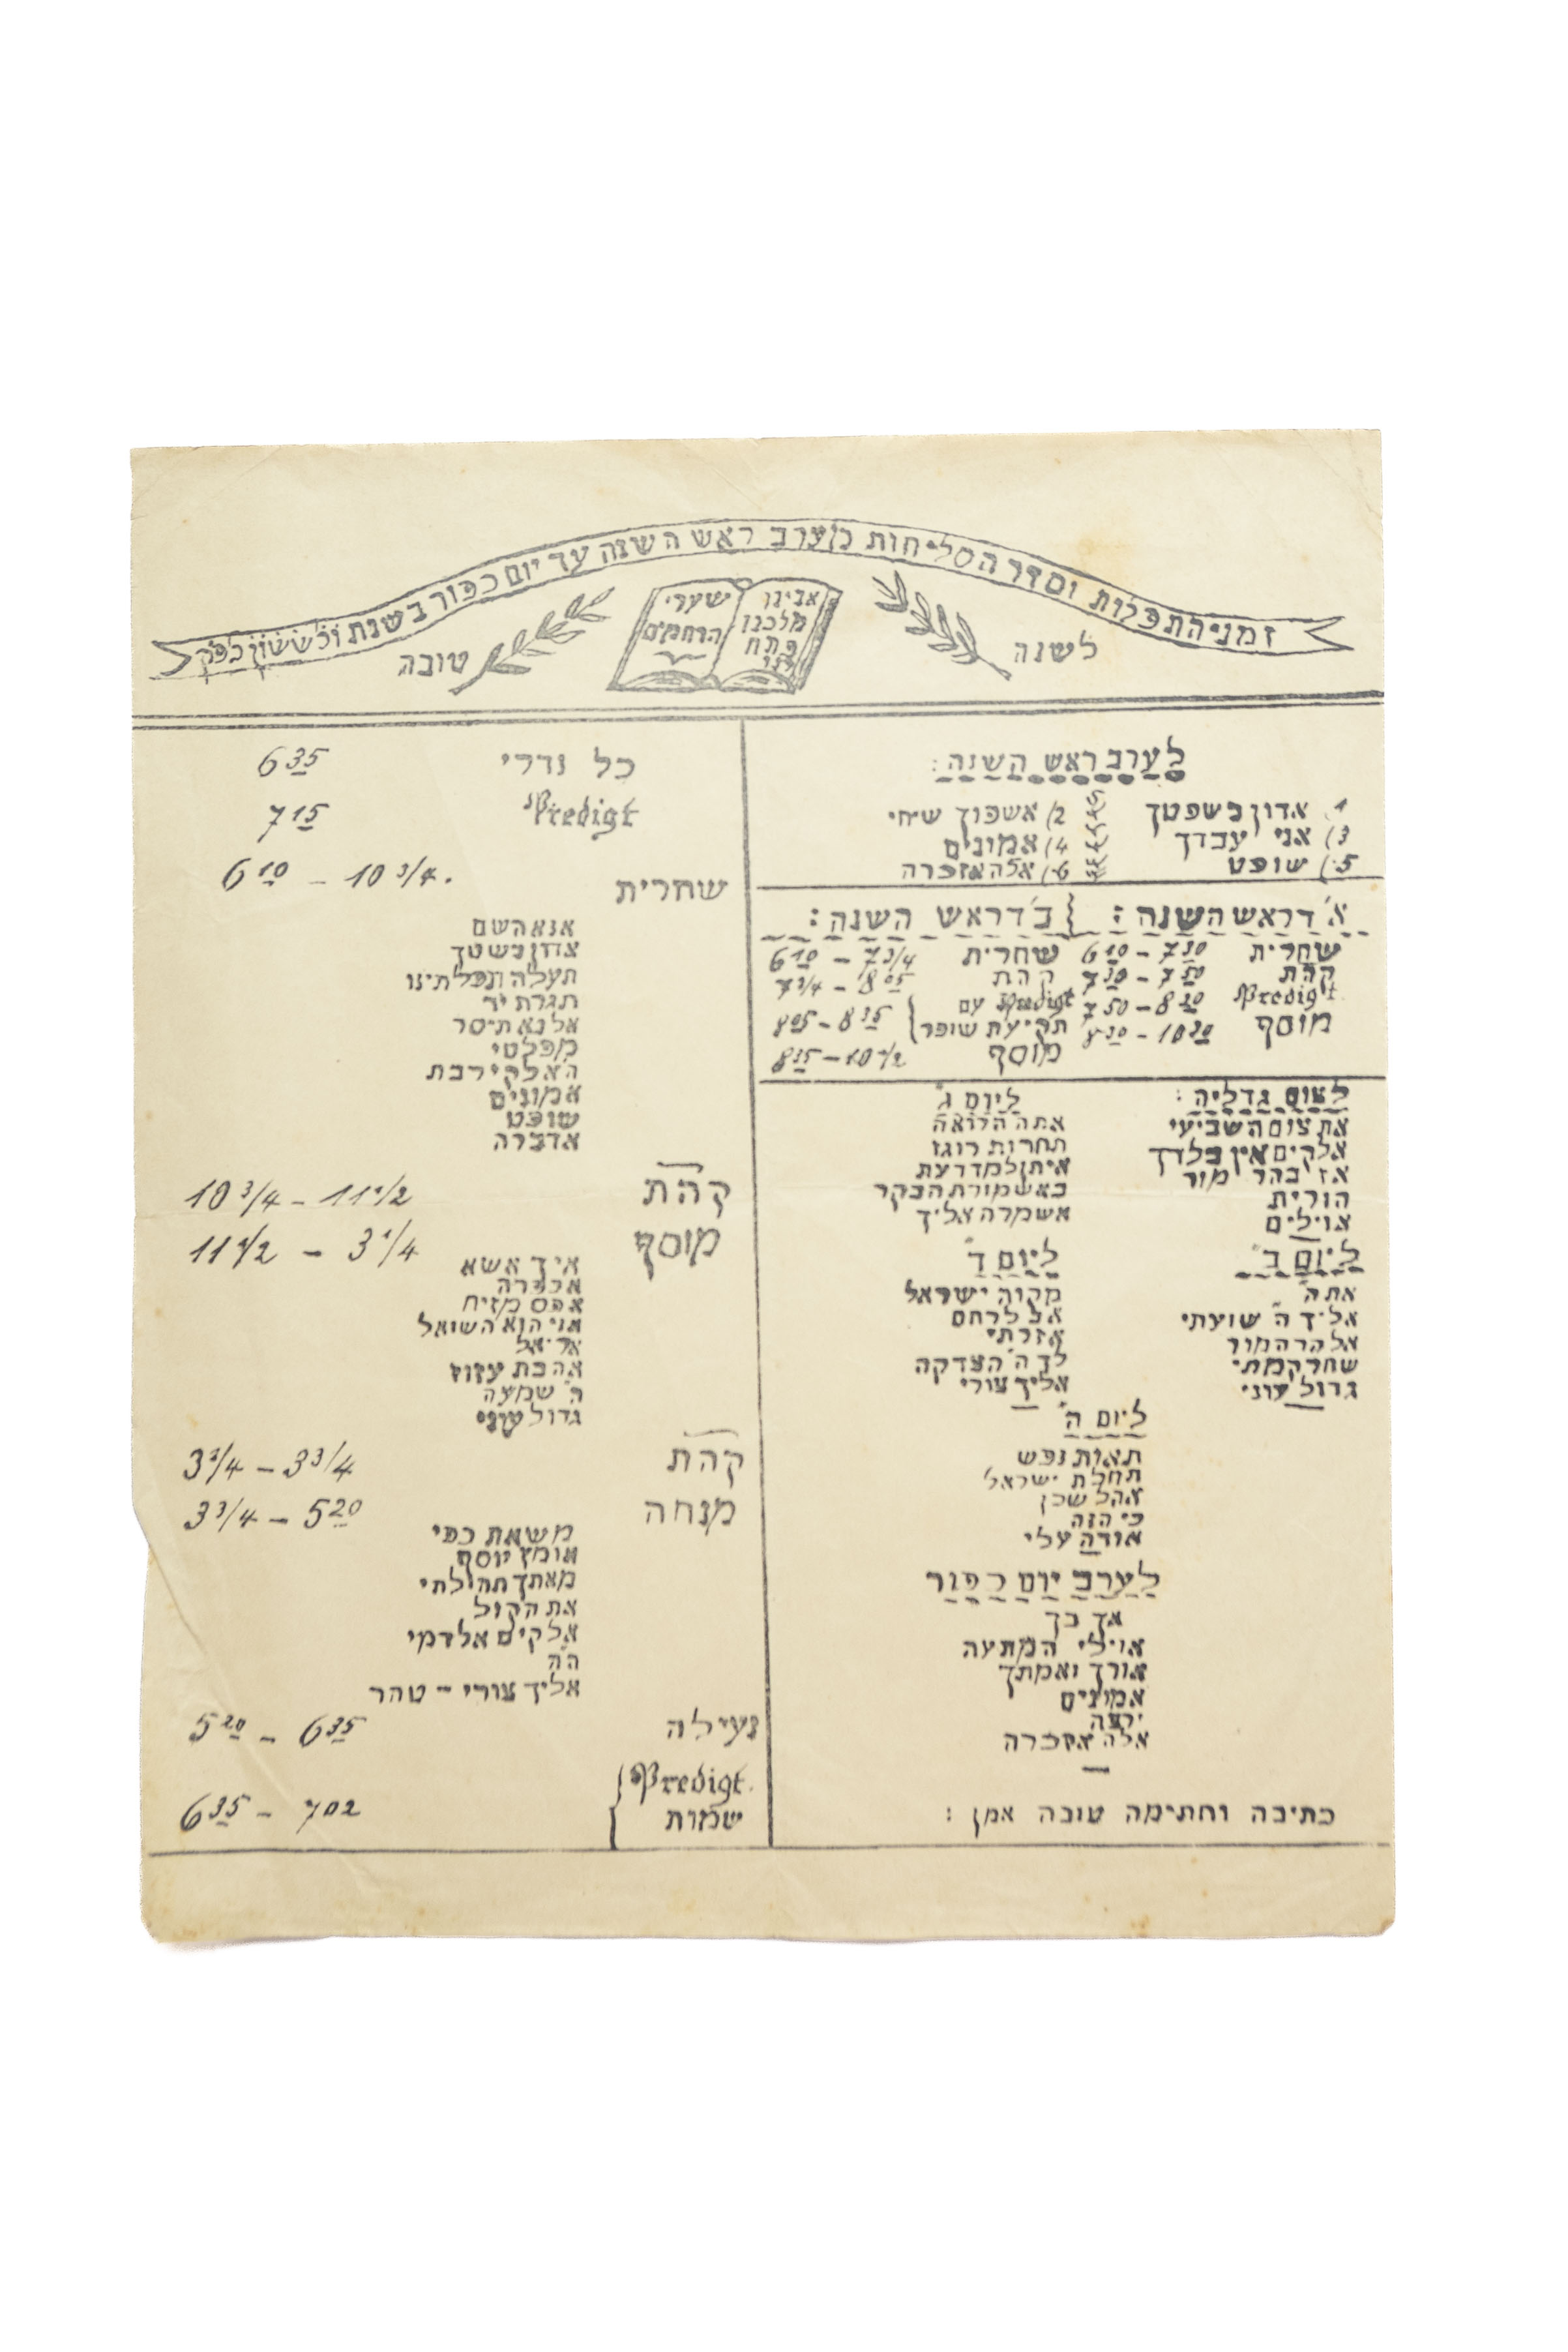 זמני התפלות וסדר הסליחות מערב ראש השנה עד יום כפור בשנת ולששון לפ"ק
לשנה
טובה
אבינו
מלכנו
פתח
לנו
שערי
הרחמים
לערב ראש השנה:
1) אדון בשפטך 2) אשפוך שיחי
3) אני עבדך 4) אמונים
5) שופט 6) אלה אזכרה
א' דראש השנה:
שחרית 6 10 – 7 30
קה"ת 7 30 – 7 50
Predigt 7 50 – 8 30
מוסף 8 30 – 10 30
ב' דראש השנה:
שחרית 6 10 – 7 3/4
קה"ת 7 3/4 – 8 05
Predigt עם
תקיעת שופר 8 05 – 8 35
מוסף 8 35 – 10 1/2
לצום גדליה:
את צום השביעי
אלקים אין בלדך
אז בהר מור
הורית
אוילים
ליום ב'
את ה'
אליך ה' שועתי
אל הר המור
שחר קמתי
גדול עוני
ליום ג'
אתה הרואה
תחרות רוגז
איתן למד דעת
באשמורת הבקר
אשמרה אליך
ליום ד'
מקוה ישראל
אב לרחם
אזרתי
לך ה' הצדקה
אליך צורי
ליום ה'
תאות נפש
תהלת ישראל
אהל שכן
כי הנה
אודה עלי
לערב יום כפור
אך בך
אוילי המתעה
אורך ואמתך
אמונים
ירצה
אלה אזכרה
כתיבה וחתימה טובה אמן:
כל נדרי 6 35
Predigt 7 15
שחרית 6 10 – 10 3/4.
אנא השם
תעלה תפלתינו
תגרת יד
אל נא תיסר
מפלטי
האלקי רבת
אמונים
שופט
אדברה
קה"ת 10 3/4 – 11 1/2
מוסף 11 1/2 – 3 1/4
איך אשא
אכברה
אפס מזיח
אני הוא השואל
אריאל
אהבת עזוז
ה' שמעה
גדול עוני
קה"ת 3 1/4 – 3 3/4
מנחה 3 3/4 – 5 20
משאת כפי
אומץ יוסף
מאתך תהילתי
את הקול
אלקים אל דמי
ה'ה'
אליך צורי – טהר
נעילה 5 20 – 6 35
Predigt.
שמות 6 35 – 7 02